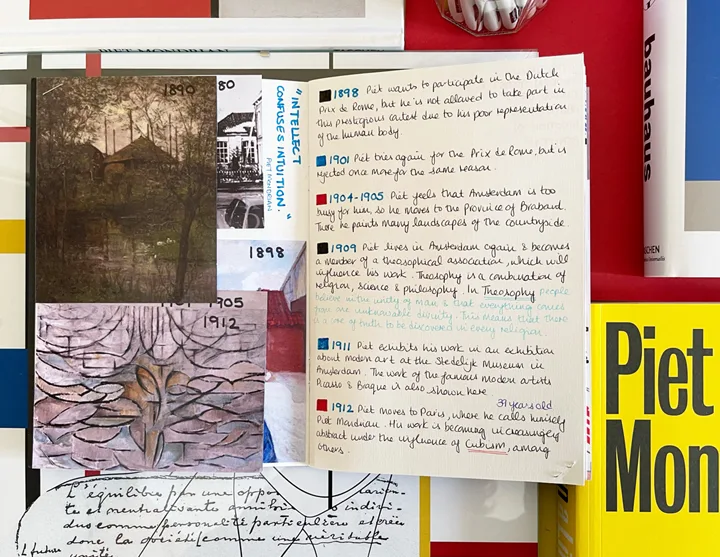 PIET MONDRIAN
1890
80
1898
1905
1912
"INTELLECT
CONFUSES INTUITION."
PIET MONDRIAN
1898 Piet wants to participate in the Dutch
Prix de Rome, but he is not allowed to take part in
this prestigious contest due to his poor representation
of the human body.
1901 Piet tries again for the Prix de Rome, but is
rejected once more for the same reason.
1904-1905 Piet feels that Amsterdam is too
busy for him, so he moves to the Province of Braband.
There he paints many landscapes of the countryside.
1909 Piet lives in Amsterdam again & becomes
a member of a theosophical association, which will
influence his work. Theosophy is a combination of
religion, science & philosophy. In Theosophy people
believe in the unity of man & that everything comes
from one unknowable divinity. This means that there
is a core of truth to be discovered in every religion.
1911 Piet exhibits his work in an exhibition
about Modern art at the Stedelijk Museum in
Amsterdam. The work of the famous modern artists
Picasso & Braque is also shown here.
39 years old
1912 Piet moves to Paris, where he calls himself
Piet Mondrian. His work is becoming increasingly
abstract under the influence of Cubism, among
others.
bauhaus
Piet
Mon
L'équilibre par une oppo
te et neutralisante annihi individu
dus comme personalité particulière et crée
donc la société comme une véritable
unité.